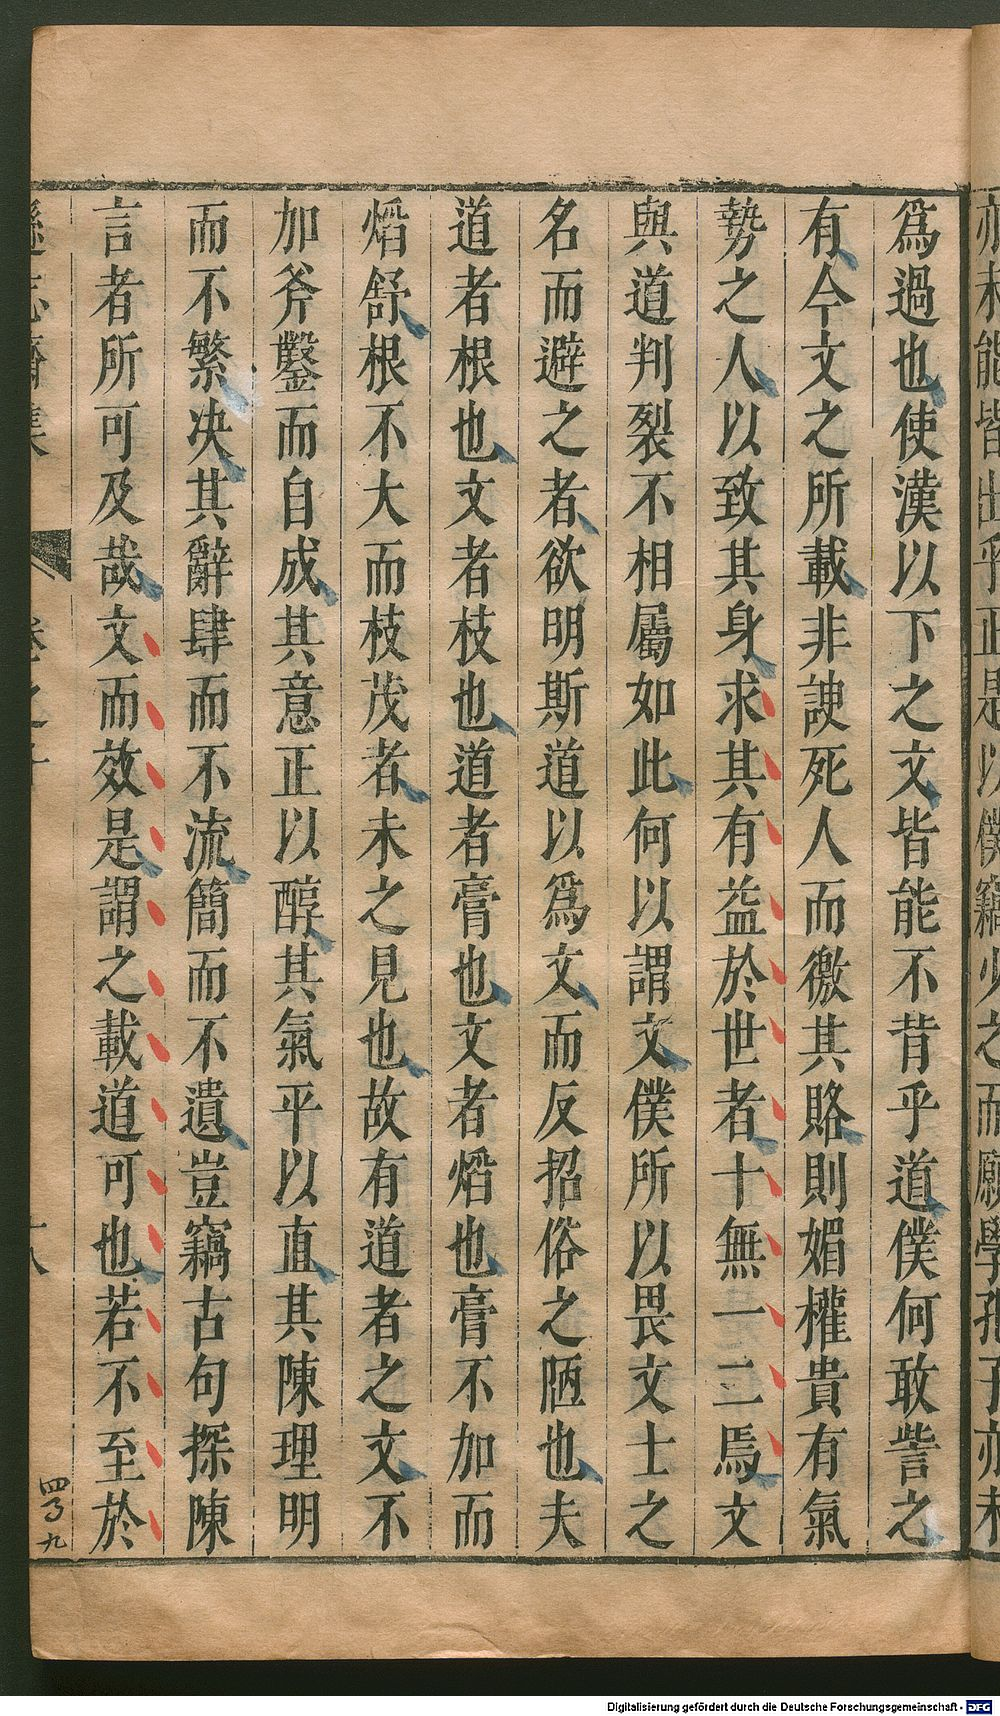 亦未能皆出乎正是以僕竊少之而願學孔子亦未
爲過也使漢以下之文皆能不背乎道僕何敢訾之
有今文之所載非諛死人而徼其賂則媚權貴有氣
勢之人以致其身求其有益於世者十無一二焉文
與道判裂不相屬如此何以謂文僕所以畏文士之
名而避之者欲明斯道以爲文而反招俗之陋也夫
道者根也文者枝也道者膏也文者焰也膏不加而
焰舒根不大而枝茂者未之見也故有道者之文不
加斧鑿而自成其意正以醇其氣平以直其陳理明
而不繁决其辭肆而不流簡而不遺豈竊古句探陳
言者所可及哉文而效是謂之載道可也若不至於
遜志齋集 卷之十 十八
四ㄋ九
Digitalisierung gefördert durch die Deutsche Forschungsgemeinschaft - DFG